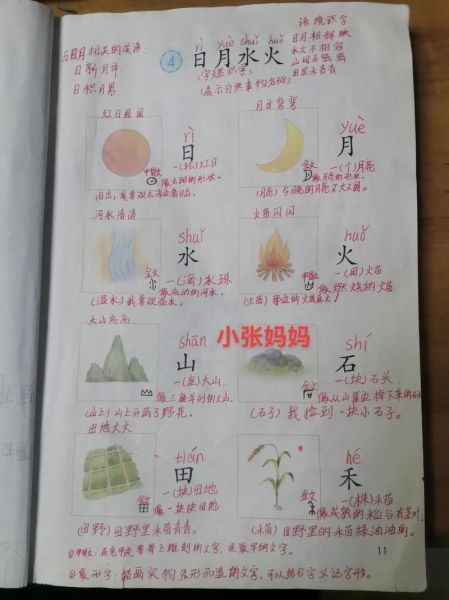 与日月相关的成语:
日新月异
日积月累
语境识字:
日月相辉映
水火不相容
田里禾苗青
④
rì yuè shuǐ huǒ
日月水火
(字理识字)
(表示自然事物名称)
红日圆圆
rì
日
一(轮)红日
像太阳的形状。
甲骨文
月牙弯弯
yuè
月
一(个)月亮
金文
(月亮)今晚的月亮又大又圆。
河水清清
shuǐ
水
一(滴)水珠
金文
像流动的河水。
(温水)我喜欢温水。
火苗闪闪
huǒ
火
一(团)火苗
甲骨文
像燃烧的火苗
小张妈妈
大山高高
shān
山
一(座)大山
像三座并列的大山。
(山上)山上开满了野花。
shí
石
一(块)石头
金文
像从山崖边掉下来的石
(石子)我捡到一块小石子。
田地大大
tián
田
一(块)田地
金文
像一块块田地
(田野)田野里禾苗青青。
hé
禾
一(株)禾苗
金文
(禾苗)田野里的禾苗绿油油的。
①甲骨文:在龟甲兽骨上雕刻的文字,是最早的文字。
②象形字:描画实物外形而造的文字,可以结合字义记字形。
11